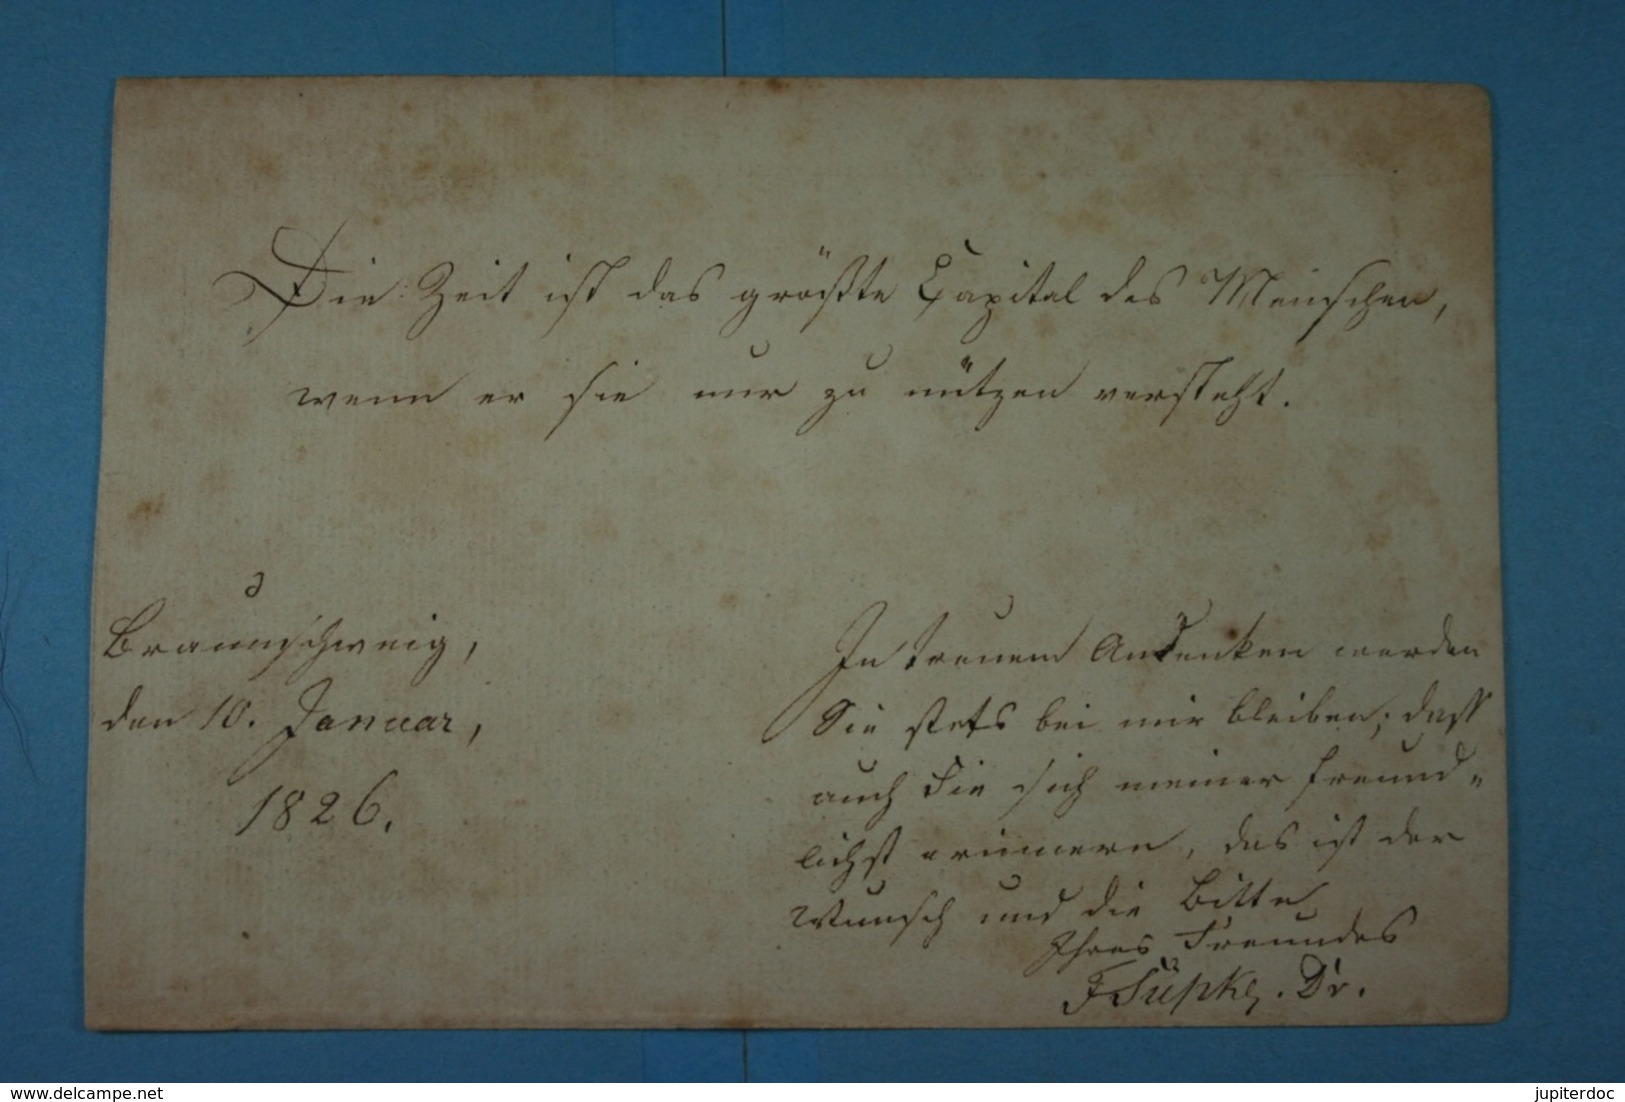 Die Zeit ist das größte Capital des Menschen,
wenn er sie nur zu nützen versteht.
Braunschweig,
den 10. Januar,
1826.
In treuem Andenken werden
Sie stets bei mir bleiben; dass
auch Sie sich meiner freund=
lichst erinnern, das ist der
Wunsch und die Bitte
Ihres Freundes
F Süpke. Dr.
delcampe.net
jupiterdoc